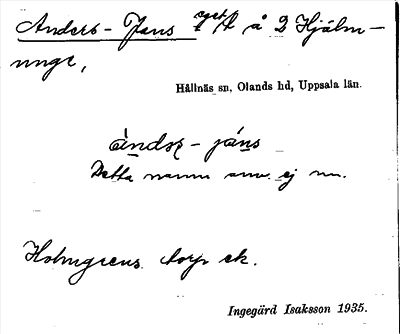 Anders-Jans t/t å 2 Hjälm-
unge,
Hållnäs sn, Olands hd, Uppsala län.
àndsʂ - jáns
Detta namn anv. ej nu.
Holmgrens torp ek.
Ingegärd Isaksson 1935.